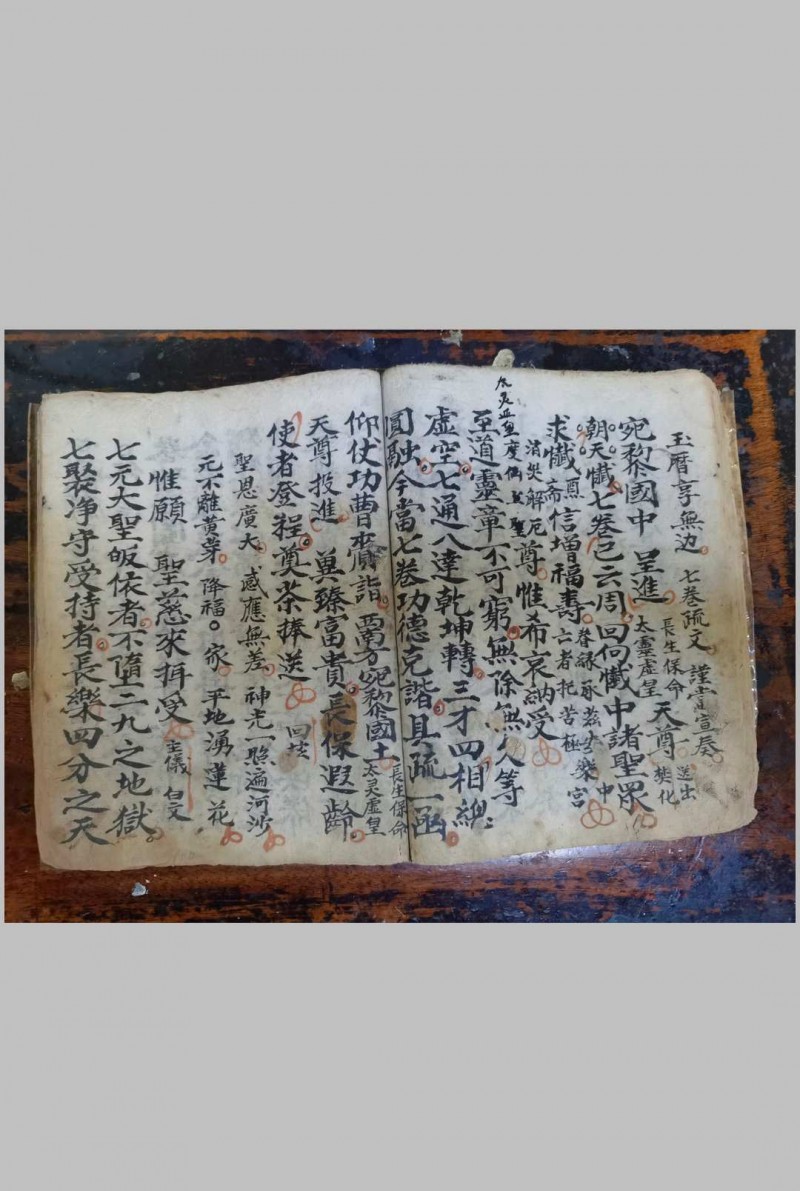 玉曆享無边 七卷疏文 謹當宣奏
長生保命 太靈虛皇 天尊 送出 焚化
宛黎國中 呈進
朝天懺七卷已云周 回向懺中諸聖眾
求懺 斋信增福壽 亡者托苦極樂宮
消災解厄 聖尊惟希哀納受
至道靈章不可窮 無除無欠等
虛空七通八達乾坤轉三才四相總
圓融今當七卷功德克諧具疏一函
仰仗功曹賷詣 西方宛黎國土 長生保命 太灵虛皇
天尊投進 冀臻富貴長保遐齡
使者登程奠茶捧送 回坛
聖恩廣大 感應無差 神光一照遍河沙
元不離黃芽 降福 家 平地湧蓮花
惟願 聖慈來拜受 主儀 白文
七元大聖皈依者不墮二九之地獄
七聚净守受持者長樂四分之天